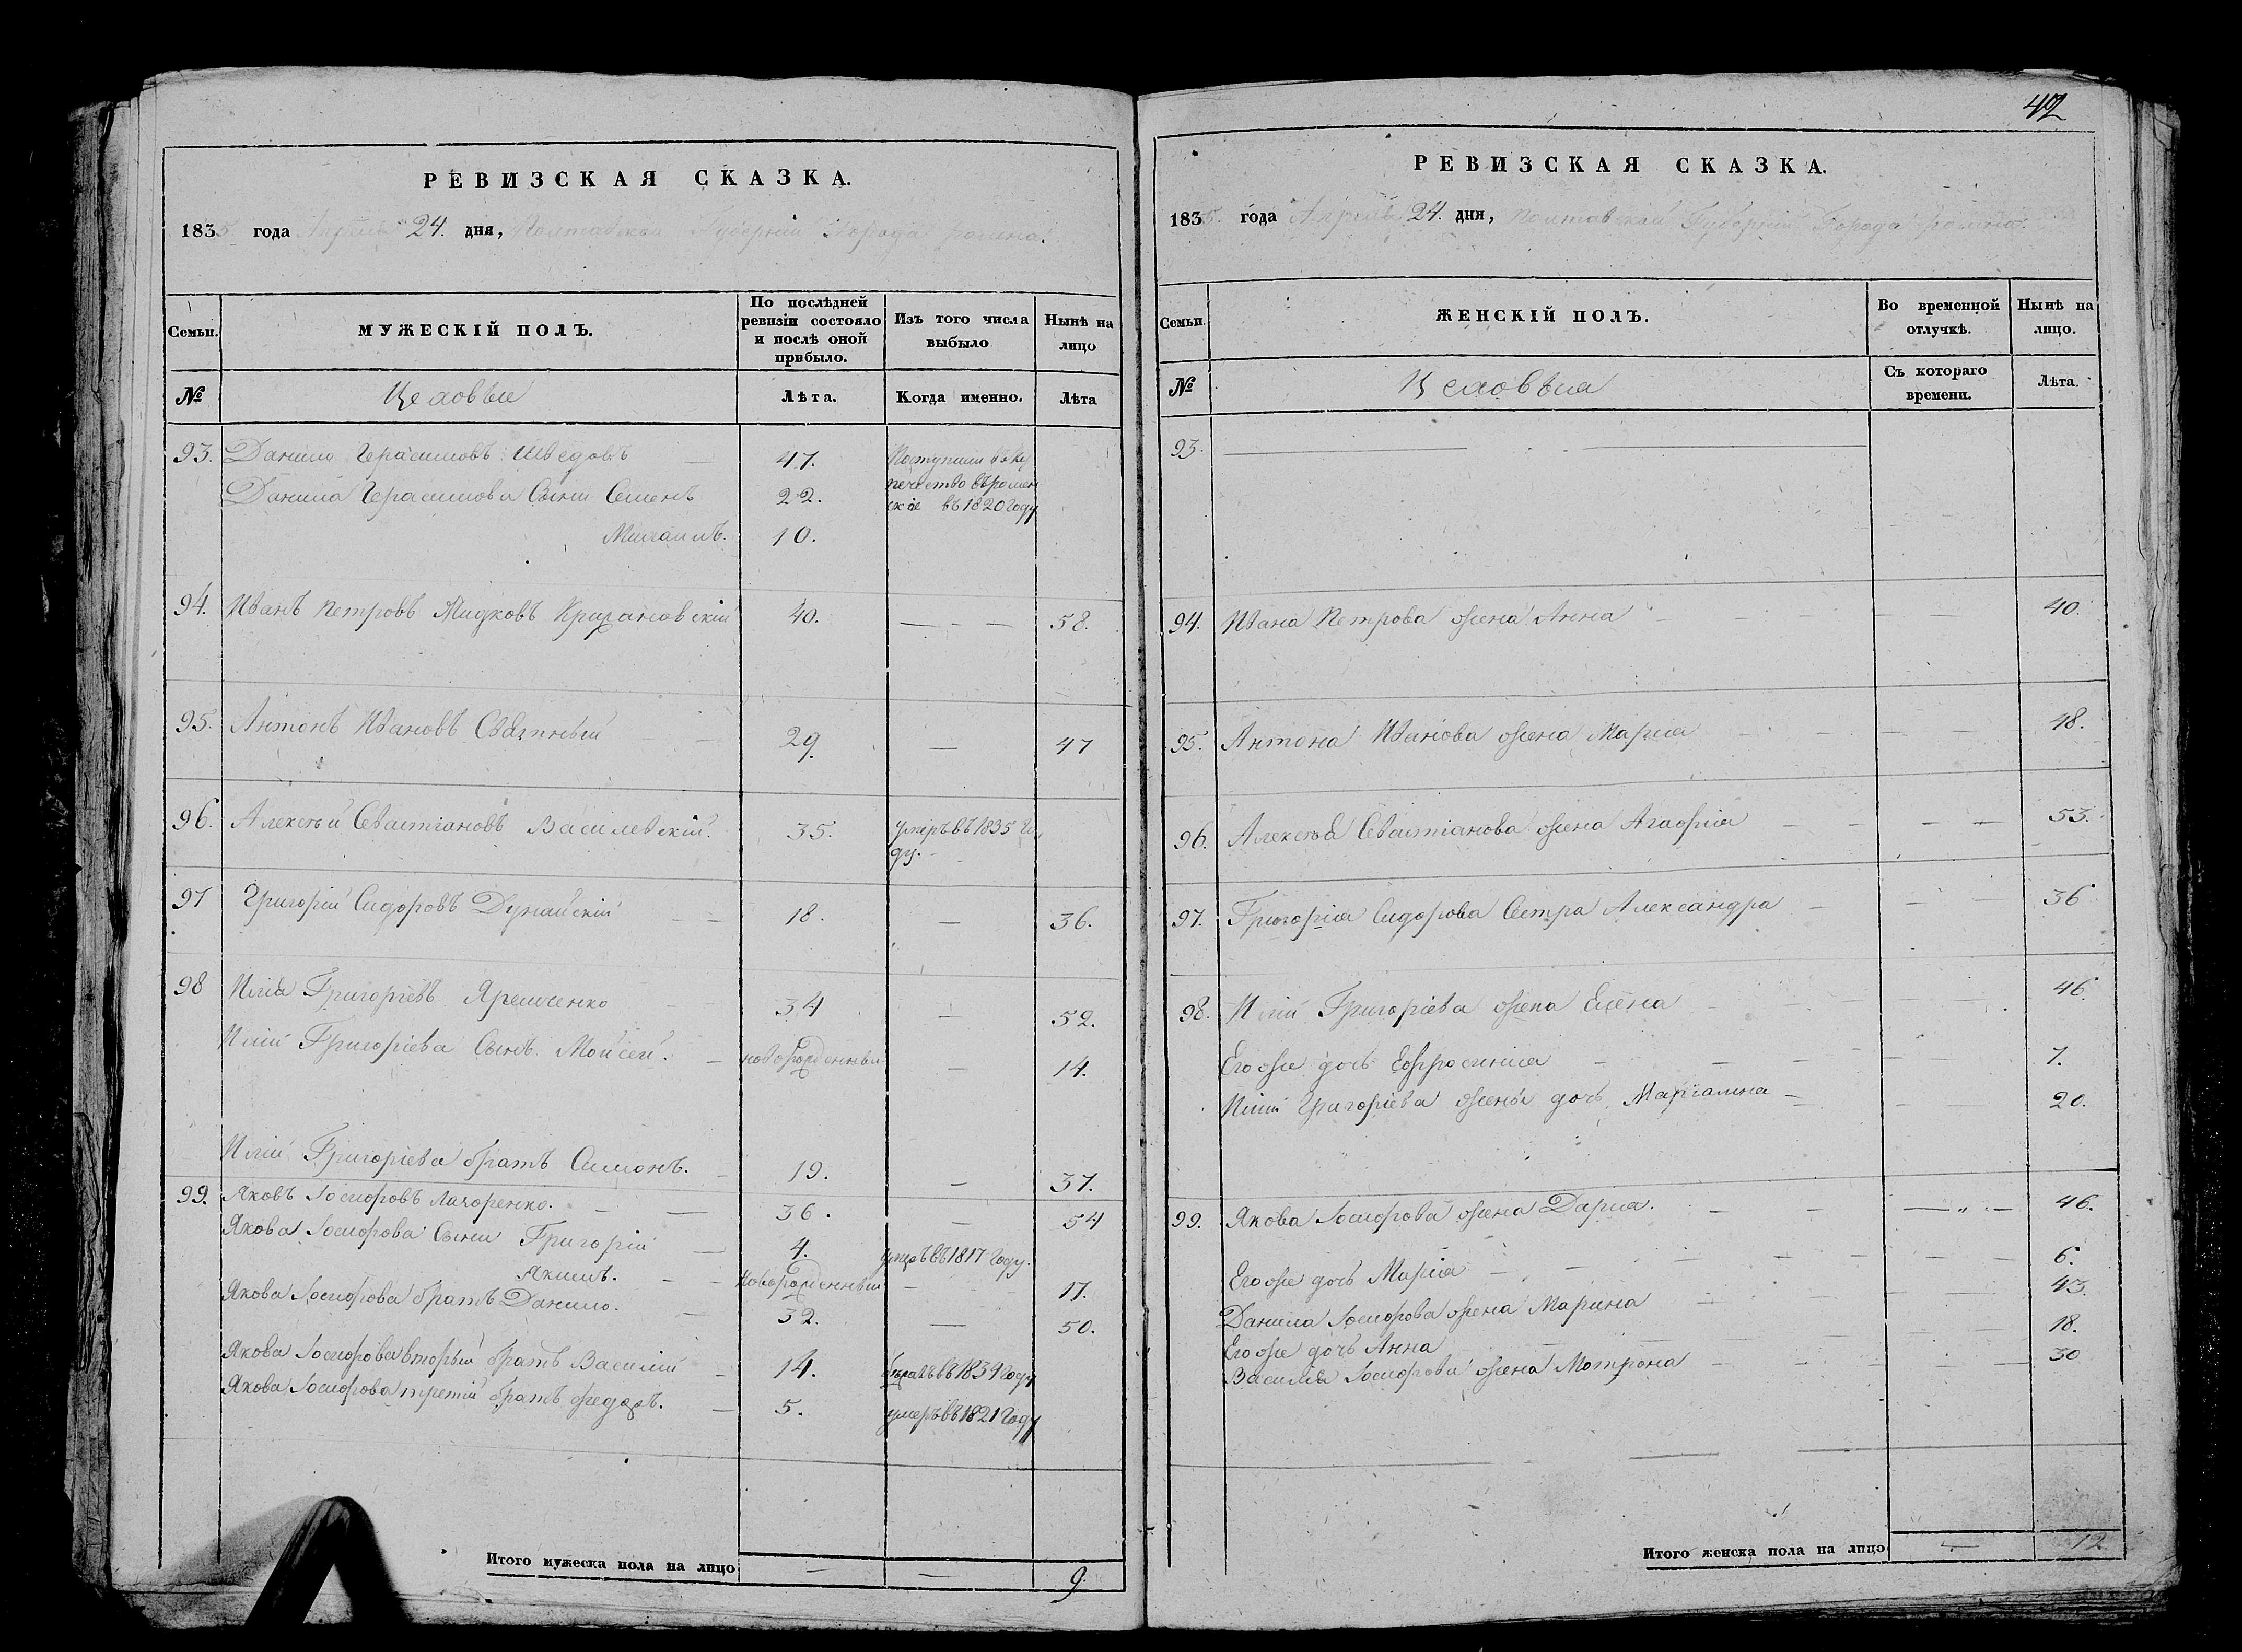 РЕВИЗСКАЯ СКАЗКА.
1835 года Апреля 24. дня, Полтавской Губерніи Города Ромна.
Семьи.
МУЖЕСКІЙ ПОЛЪ.
По послѣдней ревизіи состояло и послѣ оной прибыло.
Изъ того числа выбыло
Нынѣ на лицо
№
Лѣта.
Когда именно.
Лѣта
93. Данило Герасимовъ Шведовъ 47. Поступили в ку
Данила Герасимова Сыни Семенъ 22. печество въ ромен
ское въ 1820 Году
Михаилъ. 10.
94. Иванъ Петровъ Жидковъ 40. — 58.
95. Антонъ Ивановъ 29. — 47
96. Алексѣй Севастіановъ Василевскій. 35. умеръ въ 1835 Го
ду.
97 Григорій Сидоровъ Дунайскій 18. — 36.
98 Илія Григоріевъ Яременко 34 — 52.
Иліи Григоріева Сынъ Мойсей. новорожденный — 14.
Иліи Григоріева братъ Симонъ. 19. — 37.
99. Яковъ Іосифовъ 36. — 54
Якова Іосифова Сыни Григорій 4. умеръ въ 1817 Году.
Якимъ. Новорожденный — 17.
Якова Іосифова братъ Данило. 32. — 50.
Якова Іосифова вторый братъ Василій 14. въ 1834 Году
Якова Іосифова третій братъ Федоръ. 5. умеръ въ 1821 Году
Итого мужеска пола на лицо — — 9.
42
РЕВИЗСКАЯ СКАЗКА.
1835. года Апреля 24. дня, Полтавской Губерніи Города Ромна.
Семьи.
ЖЕНСКІЙ ПОЛЪ.
Во временной отлучкѣ.
Нынѣ на лицо.
№
Съ котораго времени.
Лѣта.
93. —
94. Ивана Петрова жена Анна — 40.
95. Антона Иванова жена Марія — 48.
96. Алексѣя Севастіанова жена Агафія — 53.
97. Григорія Сидорова Сестра Александра — 36
98. Иліи Григоріева жена Елена 46.
Его же дочь Ефросинія — 7.
Иліи Григоріева жены дочь — 20.
99. Якова Іосифова жена Дарія. — 46.
Его же дочь Марія — 6.
Данила Іосифова жена Марина — 43.
Его же дочь Анна — 18.
Василія Іосифова жена Мотрона — 30
Итого женска пола на лицо — 12